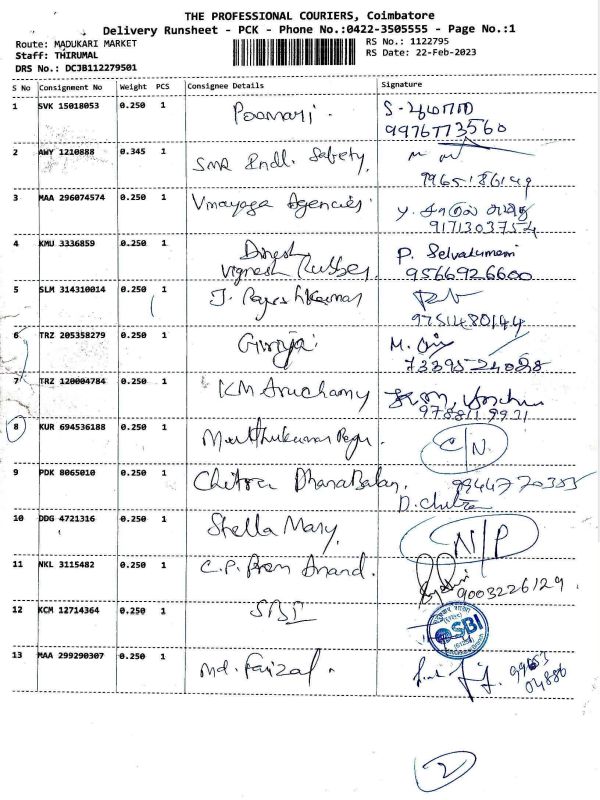 THE PROFESSIONAL COURIERS, Coimbatore
Delivery Runsheet - PCK - Phone No.:0422-3505555 - Page No.:1
Route: MADUKARI MARKET
RS No.: 1122795
Staff: THIRUMAL
RS Date: 22-Feb-2023
DRS No.: DCJB112279501
S No Consignment No Weight PCS Consignee Details Signature
1 SVK 15018053 0.250 1 Poomari.
9976773560
2 AWY 1210888 0.345 1 SMR Indl. Safety
3 MAA 296074574 0.250 1 Vinayaga Agencies
9171303754
4 KMU 3336859 0.250 1 Dinesh P. Selvakumani
Vignesh Rubber 9566926600
5 SLM 314310014 0.250 1 J. Rajesh Kumar
9751480144
6 TRZ 205358279 0.250 1 Girija M.
7339524088
7 TRZ 120004784 0.250 1 KM Aruchamy
8 KUR 694536188 0.250 1 Muthukumar C/N.
9 PDK 8065010 0.250 1 Chitra DhanaBalan. 9944770355
D. Chitra
10 DDG 4721316 0.250 1 Stella Mary N/P
11 NKL 3115482 0.250 1 C.P. Prem Anand.
9003226129.
12 KCM 12714364 0.250 1 SBI SBI
13 MAA 299290307 0.250 1 Md. Faizal. 99653
04886
2